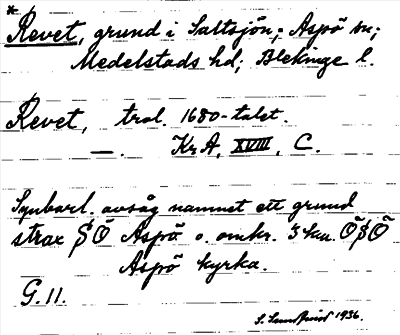 * Revet, grund i Saltsjön; Aspö sn;
Medelstads hd; Blekinge l.
Revet, trol. 1680-talet.
—. Kr.A, XVIII, C.
Synbarl. avsåg namnet ett grund
strax SÖ Aspö o. omkr. 3 km. ÖSÖ
Aspö kyrka.
G. 11.
S. Lundqvist 1936.